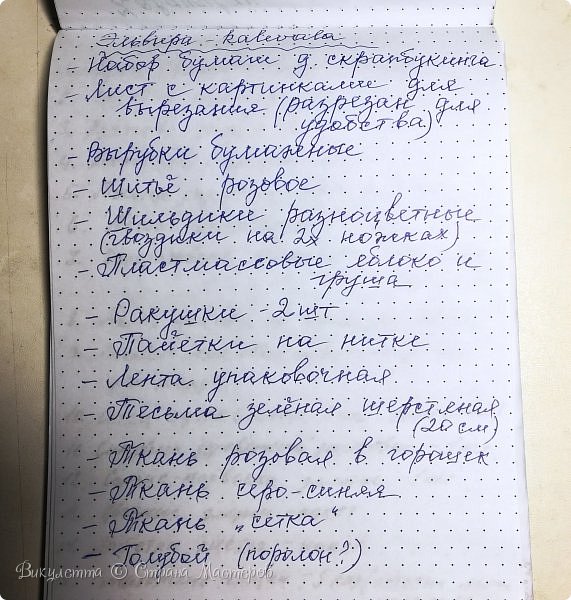 Эльвире - kalevala
- Набор бумаги д. скрапбукинга
- Лист с картинками для
вырезания (разрезан для
удобства)
- Вырубки бумажные
- Шитьё розовое
- Шильдики разноцветные
(гвоздики на 2х ножках)
- Пластмассовые яблоко и
груша
- Ракушки - 2 шт
- Пайетки на нитке
- Лента упаковочная
- Тесьма зелёная шерстяная
(20 см)
- Ткань розовая в горошек
- Ткань серо-синяя
- Ткань „сетка“
- Голубой (поролон?)
Викулетта © Страна Мастеров